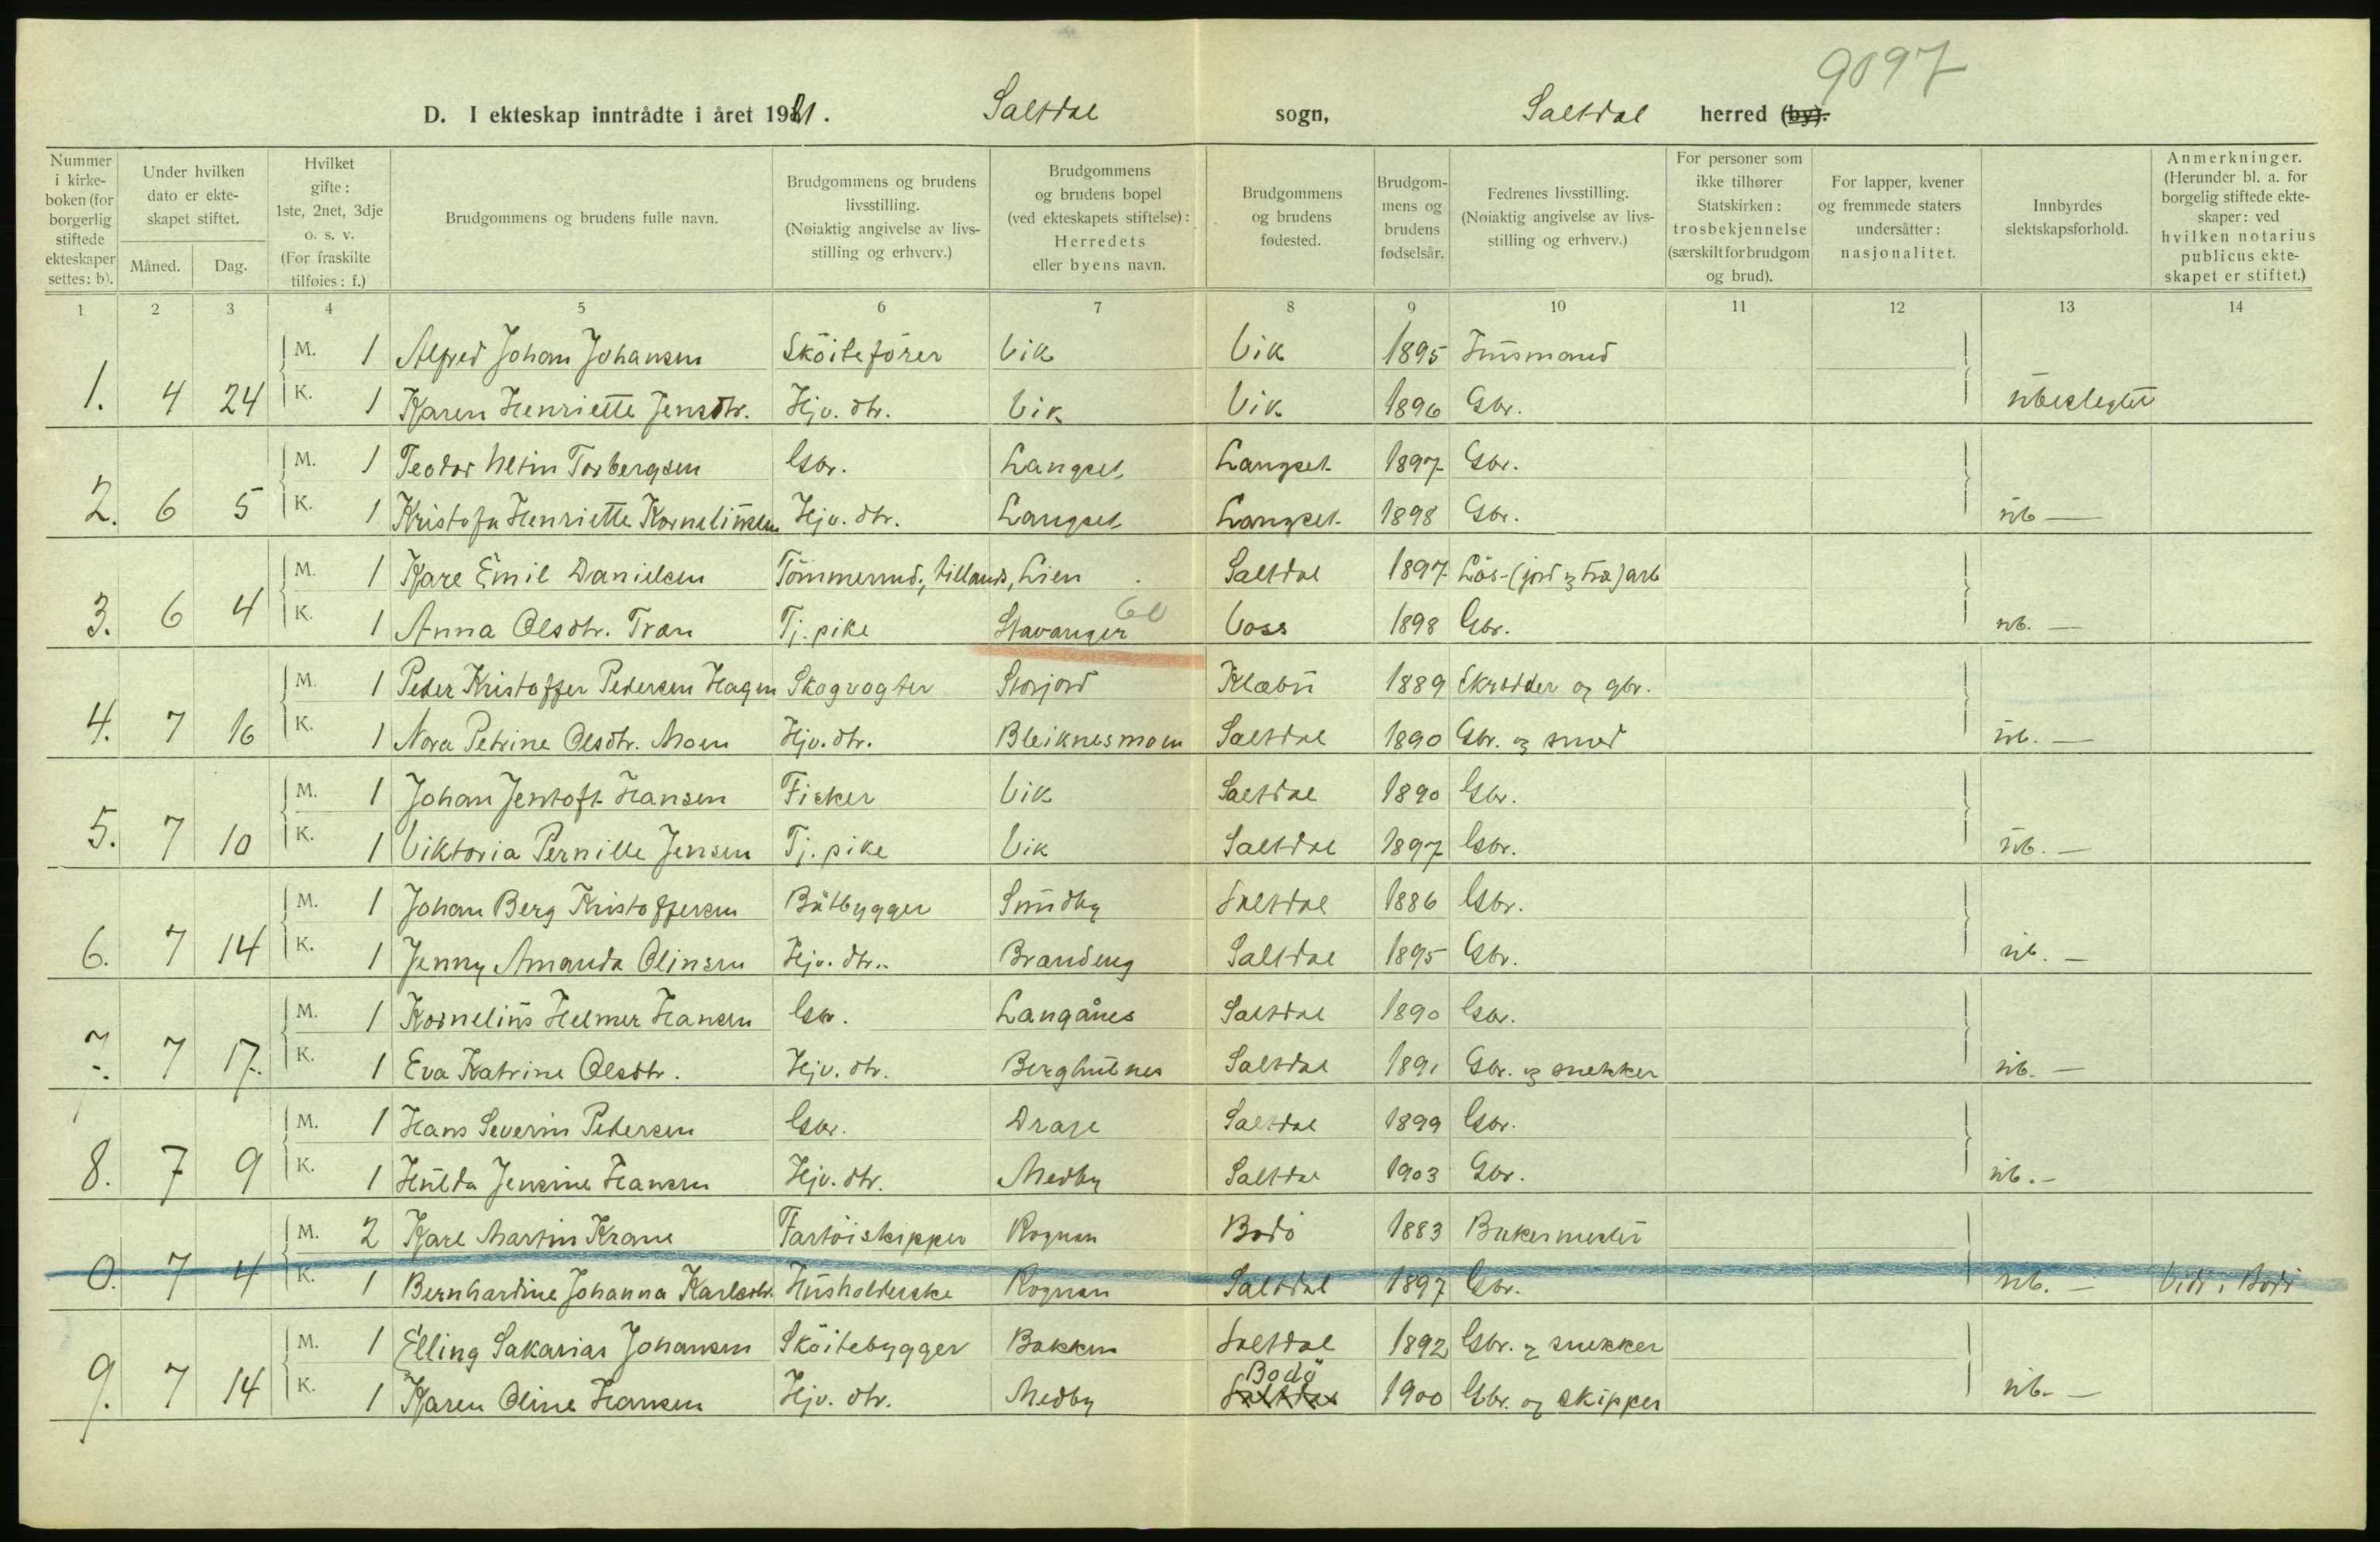 9097
D. I ekteskap inntrådte i året 1921. Saltdal sogn, Saltdal herred (by).
Nummer i kirkeboken (for borgerlig stiftede ekteskaper settes: b).
Under hvilken dato er ekteskapet stiftet.
Måned. Dag.
Hvilket gifte: 1ste, 2net, 3dje o. s. v. (For fraskilte tilføies: f.)
Brudgommens og brudens fulle navn.
Brudgommens og brudens livsstilling. (Nøiaktig angivelse av livsstilling og erhverv.)
Brudgommens og brudens bopel (ved ekteskapets stiftelse): Herredets eller byens navn.
Brudgommens og brudens fødested.
Brudgommens og brudens fødselsår.
Fedrenes livsstilling. (Nøiaktig angivelse av livsstilling og erhverv.)
For personer som ikke tilhører Statskirken: trosbekjennelse (særskilt for brudgom og brud).
For lapper, kvener og fremmede staters undersåtter: nasjonalitet.
Innbyrdes slektskapsforhold.
Anmerkninger. (Herunder bl. a. for borgelig stiftede ekteskaper: ved hvilken notarius publicus ekteskapet er stiftet.)
1 2 3 4 5 6 7 8 9 10 11 12 13 14
M. 1 Alfred Johan Johansen Sköitefører Vik Vik 1895 Husmand
1. 4 24 K. 1 Karen Henriette Jensdtr. Hjv. dtr. Vik Vik 1896 Gbr. übeslegtet
M. 1 Teodor Torbergsen Gbr. Langset Langset 1897 Gbr.
2. 6 5 K. 1 Kristofa Henriette Korneliussen Hjv. dtr. Langset Langset 1898 Gbr. üb —
M. 1 Karl Emil Danielsen Tömmermd., Lien Saltdal 1897 Lös-(jord og træ)arb
3. 6 4 K. 1 Anna Olsdtr. Tran Tj. pike Stavanger Voss 1898 Gbr. üb. —
M. 1 Peder Kristoffer Pedersen Hagen Skogvogter Storjord Klæbü 1889 Skrædder og gbr.
4. 7 16 K. 1 Nora Petrine Olsdtr. Moen Hjv. dtr. Bleiknesmoen Saltdal 1890 Gbr. og smed üb. —
M. 1 Johan Jentoft Hansen Fisker Vik Saltdal 1890 Gbr.
5. 7 10 K. 1 Viktoria Pernille Jensen Tj. pike Vik Saltdal 1897 Gbr. üb. —
M. 1 Johan Berg Kristoffersen Båtbygger Sündby Saltdal 1886 Gbr.
6. 7 14 K. 1 Jenny Amanda Olinsen Hjv. dtr. Brandeng Saltdal 1895 Gbr. üb. —
M. 1 Kornelius Helmer Hansen Gbr. Langånes Saltdal 1890 Gbr.
7. 7 17. K. 1 Eva Katrine Olsdtr. Hjv. dtr. Berghülnes Saltdal 1891 Gbr. og snekker üb. —
M. 1 Hans Severin Pedersen Gbr. Drage Saltdal 1899 Gbr.
8. 7 9 K. 1 Hülda Jensine Hansen Hjv. dtr. Medby Saltdal 1903 Gbr. üb. —
M. 2 Karl Martin Krane Fartöiskipper Rognan Bodö 1883 Bakermester
0. 7 4 K. 1 Bernhardine Johanna Karlsdtr. Hüsholderske Rognan Saltdal 1897 Gbr. üb. — Vidi i Bodö
M. 1 Elling Sakarias Johansen Sköitebygger Bakken Saltdal 1892 Gbr. og snekker
9. 7 14 K. 1 Karen Oline Hansen Hjv. dtr. Medby Saltdal Bodö 1900 Gbr. og skipper üb. —